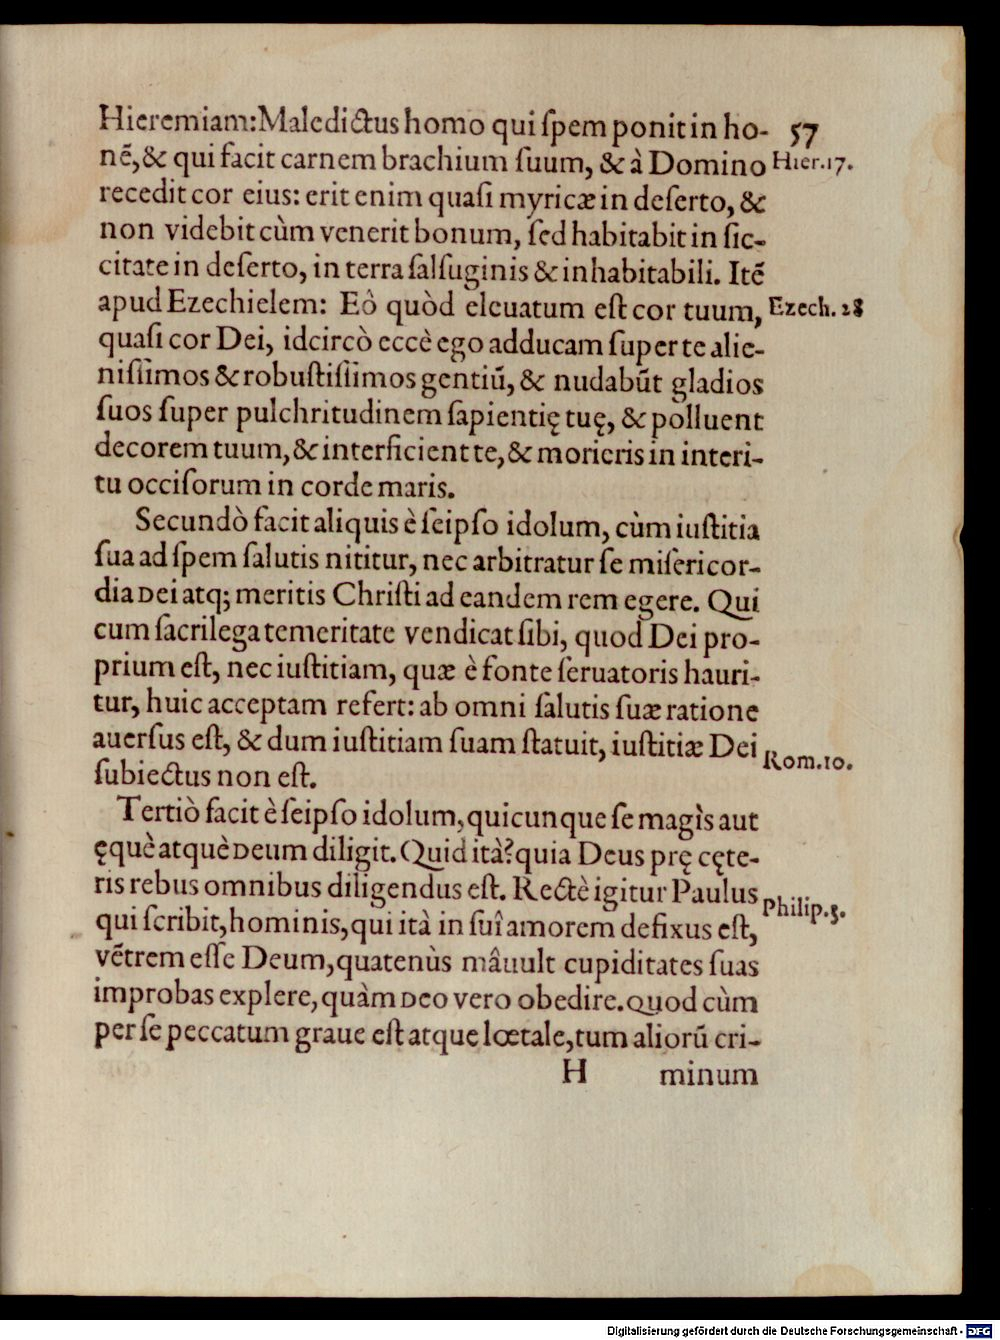 Hieremiam: Maledictus homo qui ſpem ponit in ho- 57
nẽ, & qui facit carnem brachium ſuum, & à Domino Hier.17.
recedit cor eius: erit enim quaſi myricæ in deſerto, &
non videbit cùm venerit bonum, ſed habitabit in ſic-
citate in deſerto, in terra ſalſuginis & inhabitabili. Itẽ
apud Ezechielem: Eò quòd eleuatum eſt cor tuum, Ezech. 28
quaſi cor Dei, idcircò eccè ego adducam ſuper te alie-
niſſimos & robuſtiſſimos gentiũ, & nudabũt gladios
ſuos ſuper pulchritudinem ſapientię tuę, & polluent
decorem tuum, & interficient te, & morieris in interi-
tu occiſorum in corde maris.
Secundò facit aliquis è ſeipſo idolum, cùm iuſtitia
ſua ad ſpem ſalutis nititur, nec arbitratur ſe miſericor-
dia Dei atq; meritis Chriſti ad eandem rem egere. Qui
cum ſacrilega temeritate vendicat ſibi, quod Dei pro-
prium eſt, nec iuſtitiam, quæ è fonte ſeruatoris hauri-
tur, huic acceptam refert: ab omni ſalutis ſuæ ratione
auerſus eſt, & dum iuſtitiam ſuam ſtatuit, iuſtitiæ Dei Rom.10.
ſubiectus non eſt.
Tertiò facit è ſeipſo idolum, quicunque ſe magìs aut
ęquè atquè Deum diligit. Quid ità? quia Deus prę cęte-
ris rebus omnibus diligendus eſt. Rectè igitur Paulus Philip.3.
qui ſcribit, hominis, qui ità in ſuî amorem defixus eſt,
vẽtrem eſſe Deum, quatenùs mâuult cupiditates ſuas
improbas explere, quàm Deo vero obedire. Quod cùm
per ſe peccatum graue eſt atque lœtale, tum aliorũ cri-
H minum
Digitalisierung gefördert durch die Deutsche Forschungsgemeinschaft - DFG